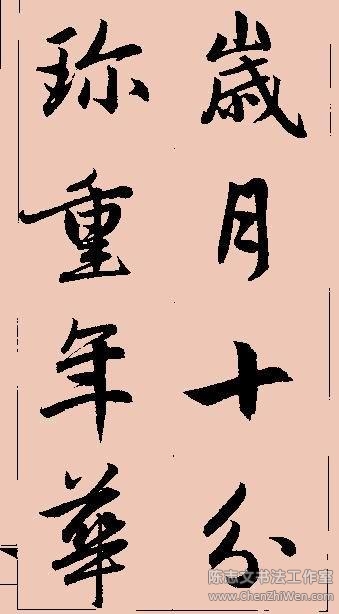 歲月十分
珎重年華
陈志文书法工作室
www.ChenZhiWen.com